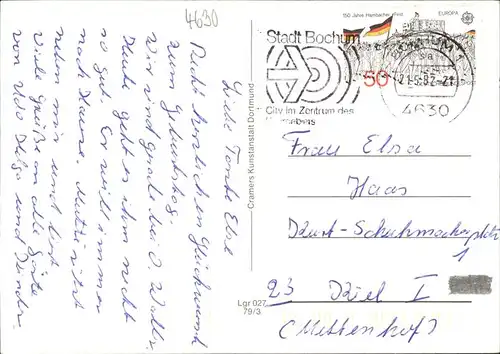 4630
Liebe Tante Else
Recht herzlichen Glückwunsch
zum Geburtstag.
Wir sind gerade bei O. Walter.
Heute geht es ihm nicht
so gut. Er will immer
nach Hause. Mutti sitzt
neben mir und
Viele Grüße an alle Gäste
von Udo Helga und Kinder.
Cramers Kunstanstalt Dortmund
Lgr 027
79/3
150 Jahre Hambacher Fest
EUROPA
Stadt Bochum
50
21.5.82-21
City im Zentrum des
4630
Frau Elsa
Haas
Kurt-Schuhmacherplatz
1
23 Kiel I
(Mettenhof)